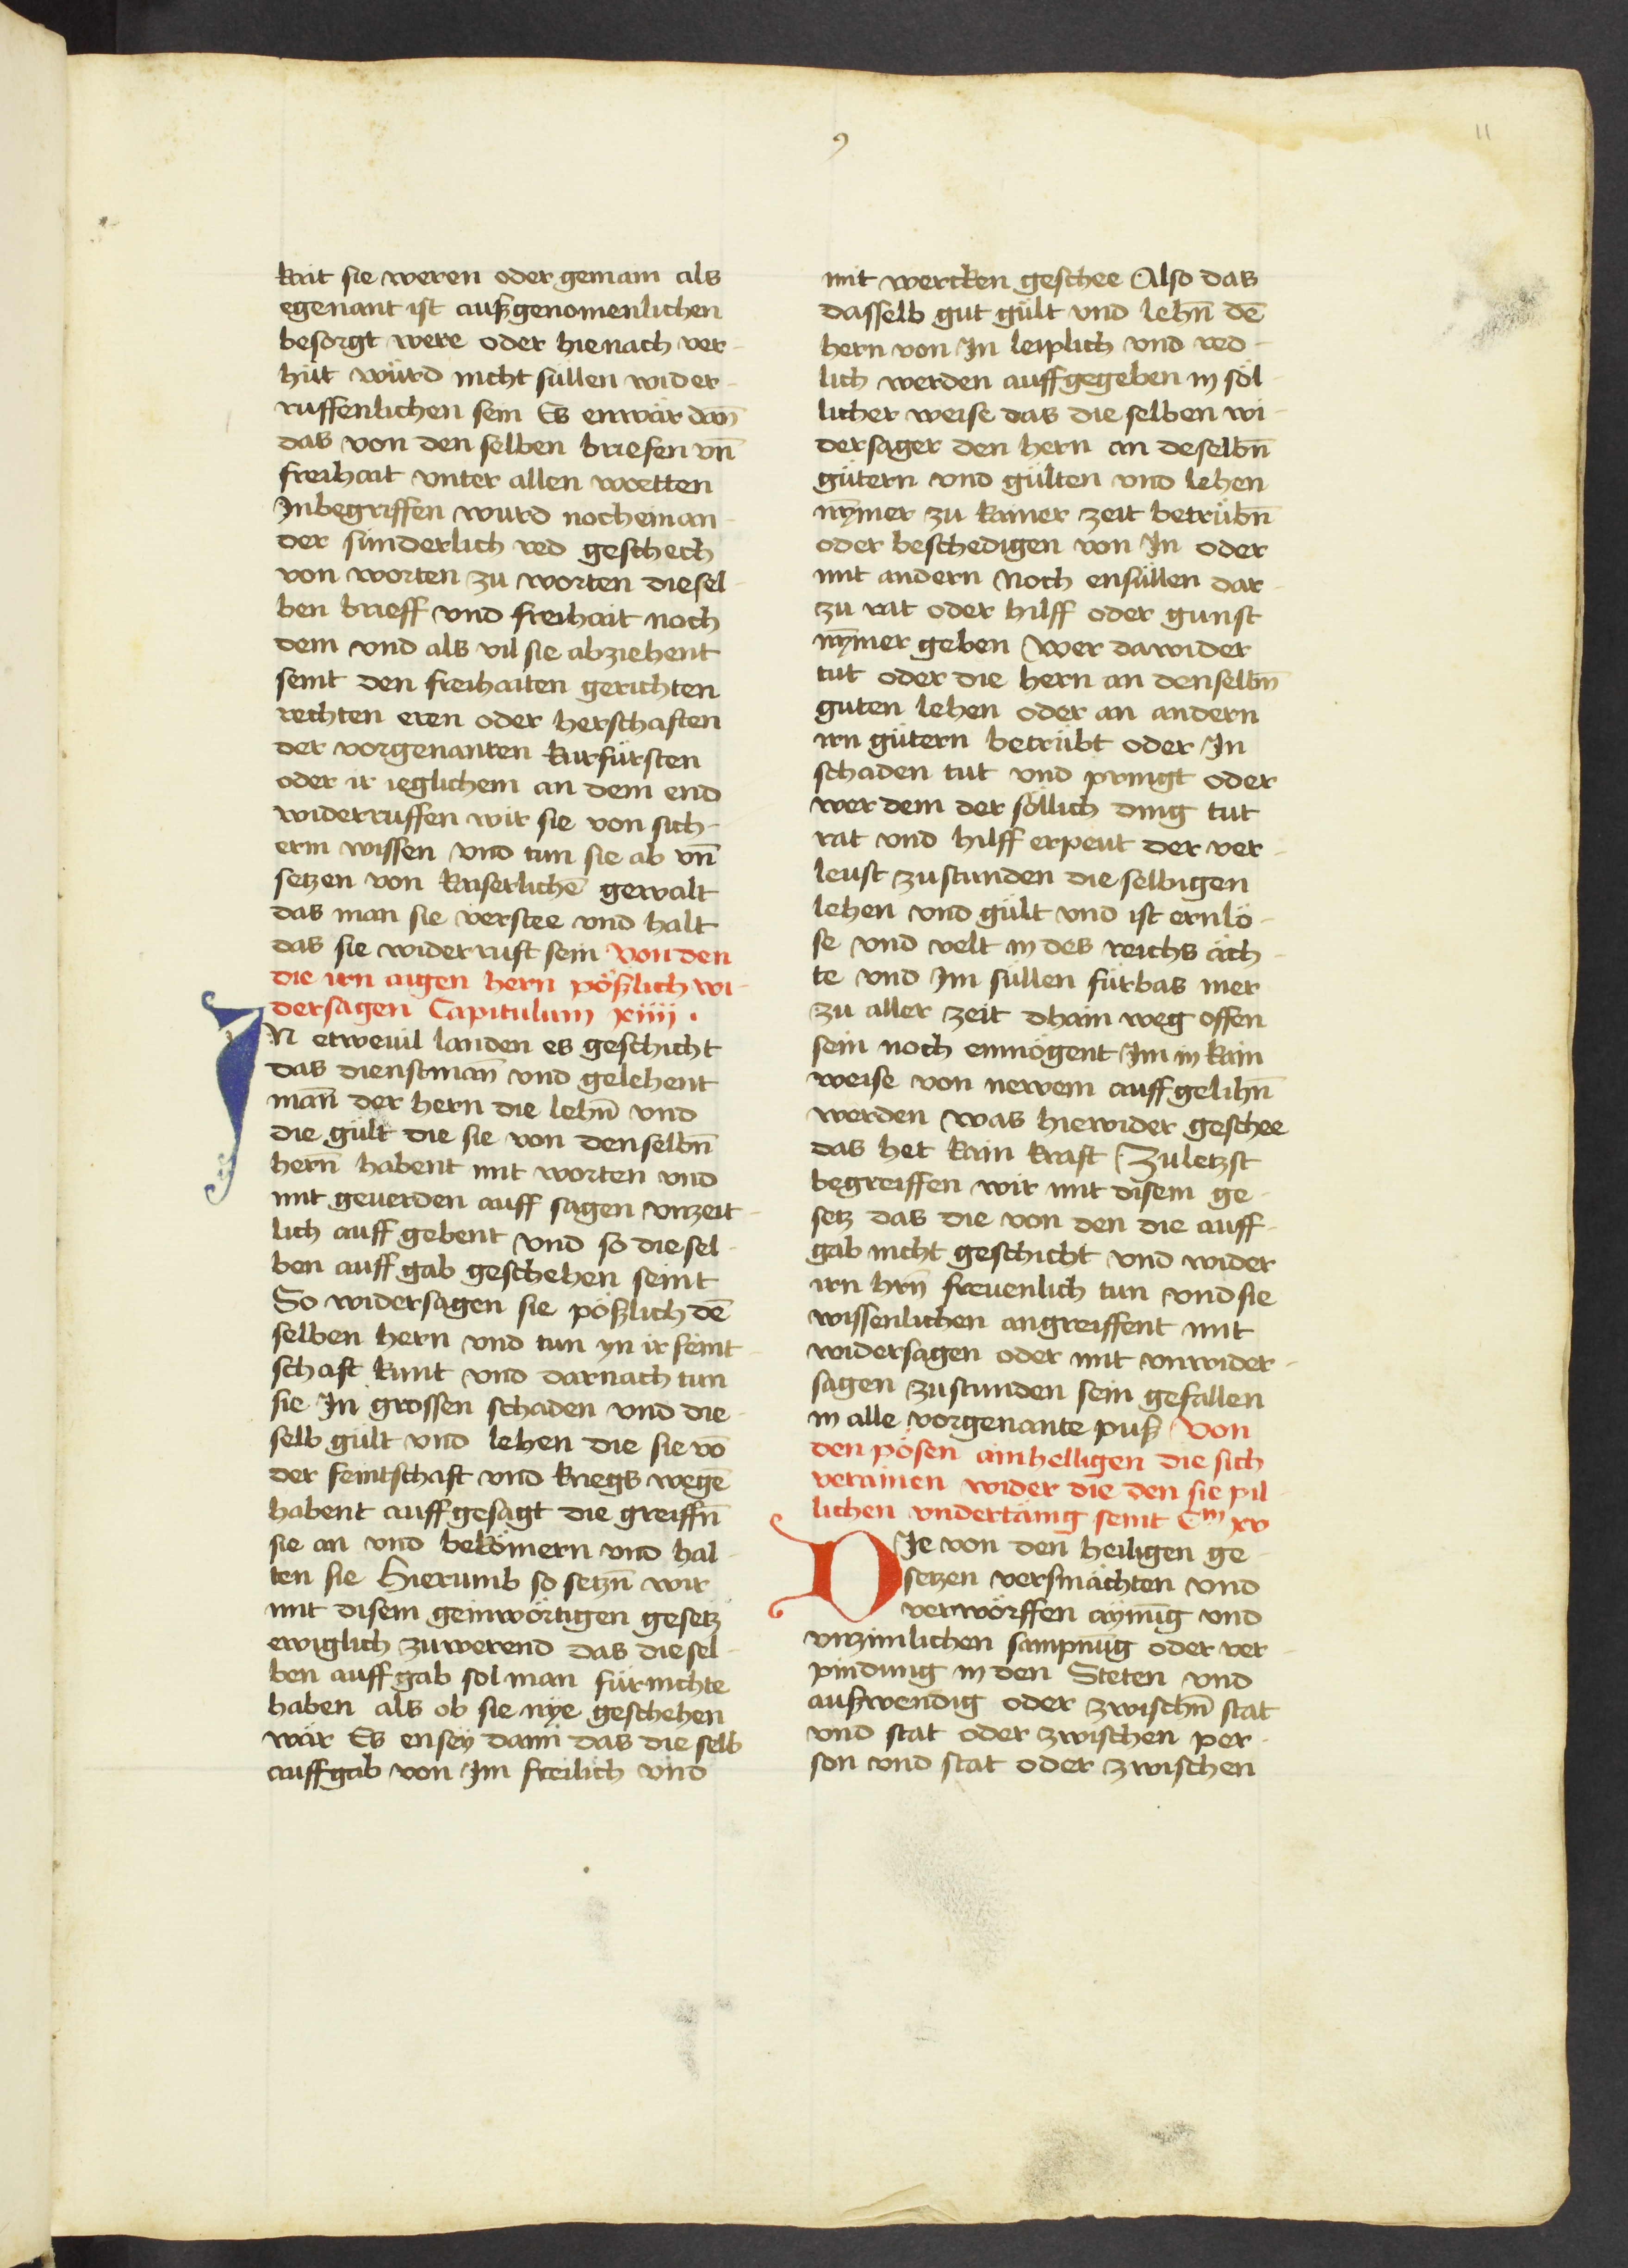 9
11
kait sie weren oder gemain als
egenant ist außgenomenlichen
besorgt were oder hienach ver-
hüt würd nicht süllen wider-
ruffenlichen sein Es enwär dan̄
das von den selben briefen vn̄
freihait vnter allen wortten
Inbegriffen wurd nocheinan-
der sünderlich red geschech
von worten zu worten diesel-
ben brieff vnd freihait noch
dem vnd als vil sie abziehent
seint den freihaiten gerichten
rechten eren oder herschaften
der vorgenanten kurfürsten
oder ir ieglichem an dem end
widerruffen wir sie von sich-
erm wissen vnd tun sie ab vn̄
setzen von kaiserlichē gewalt
das man sie verstee vnd halt
das sie widerruft sein Von den
die irn aigen hern pößlich wi-
dersagen Capitulum xiiii .
IN etweuil landen es geschicht
das dienstman̄ vnd gelehent
man̄ der hern die lehn̄ vnd
die gült die sie von denselbn̄
hern̄ habent mit worten vnd
mit geuerden auff sagen vnzeit-
lich auff gebent vnd so diesel-
ben auff gab geschehen seint
So widersagen sie pößlich dē
selben hern vnd tun yn ir feint-
schaft kunt vnd darnach tun
sie In grossen schaden vnd die-
selb gült vnd lehen die sie vō
der feintschaft vnd kriegs wegē
habent auffgesagt die greiffn̄
sie an vnd bekömern vnd hal-
ten sie Hierumb so setzn̄ wir
mit disem geinwörtigen gesetz
ewiglich zuwerend das diesel-
ben auffgab sol man für nichte
haben als ob sie nye geschehen
wär Es ensey dann das die selb
auffgab von Im freilich vnd
mit wercken geschee Also das
dasselb gut gült vnd lehn̄ dē
hern von In leiplich vnd red-
lich werden auffgegeben in söl-
licher weise das die selben wi-
dersager den hern an deselbn̄
gütern vnd gülten vnd lehen
nȳmer zu kainer zeit betrübn̄
oder beschedigen von In oder
mit andern Noch ensüllen dar-
zu rat oder hilff oder gunst
nȳmer geben Wer dawider
tut oder die hern an denselbn̄
guten lehen oder an andern
irn gütern betrübt oder In
schaden tut vnd pringt oder
wer dem der söllich ding tut
rat vnd hilff erpeut der ver-
leust zustunden die selbigen
lehen vnd gült vnd ist ernlö-
se vnd velt in des reichs äch-
te vnd Im süllen fürbas mer
zu aller zeit dhain weg offen
sein noch enmögent Im in kain
weise von newem auffgelihn̄
werden was hiewider geschee
das het kain kraft Zuletzst
begreiffen wir mit disem ge-
setz das die von den die auff-
gab nicht geschicht vnd wider
irn hrn̄ freuenlich tun vnd sie
wissenlichen angreiffent mit
widersagen oder mit vnwider-
sagen zustunden sein gefallen
in alle vorgenante puß Von
den pösen ainhelligen die sich
verainen wider die den sie pil-
lichen vndertänig seint Cm xv
DIe von den heiligen ge-
setzen versmächten vnd
verwörffen aÿnūg vnd
vnzimlichen sampnūg oder ver-
pindung in den Steten vnd
außwendig oder zwischn̄ stat
vnd stat oder zwischen per-
son vnd stat oder zwischen